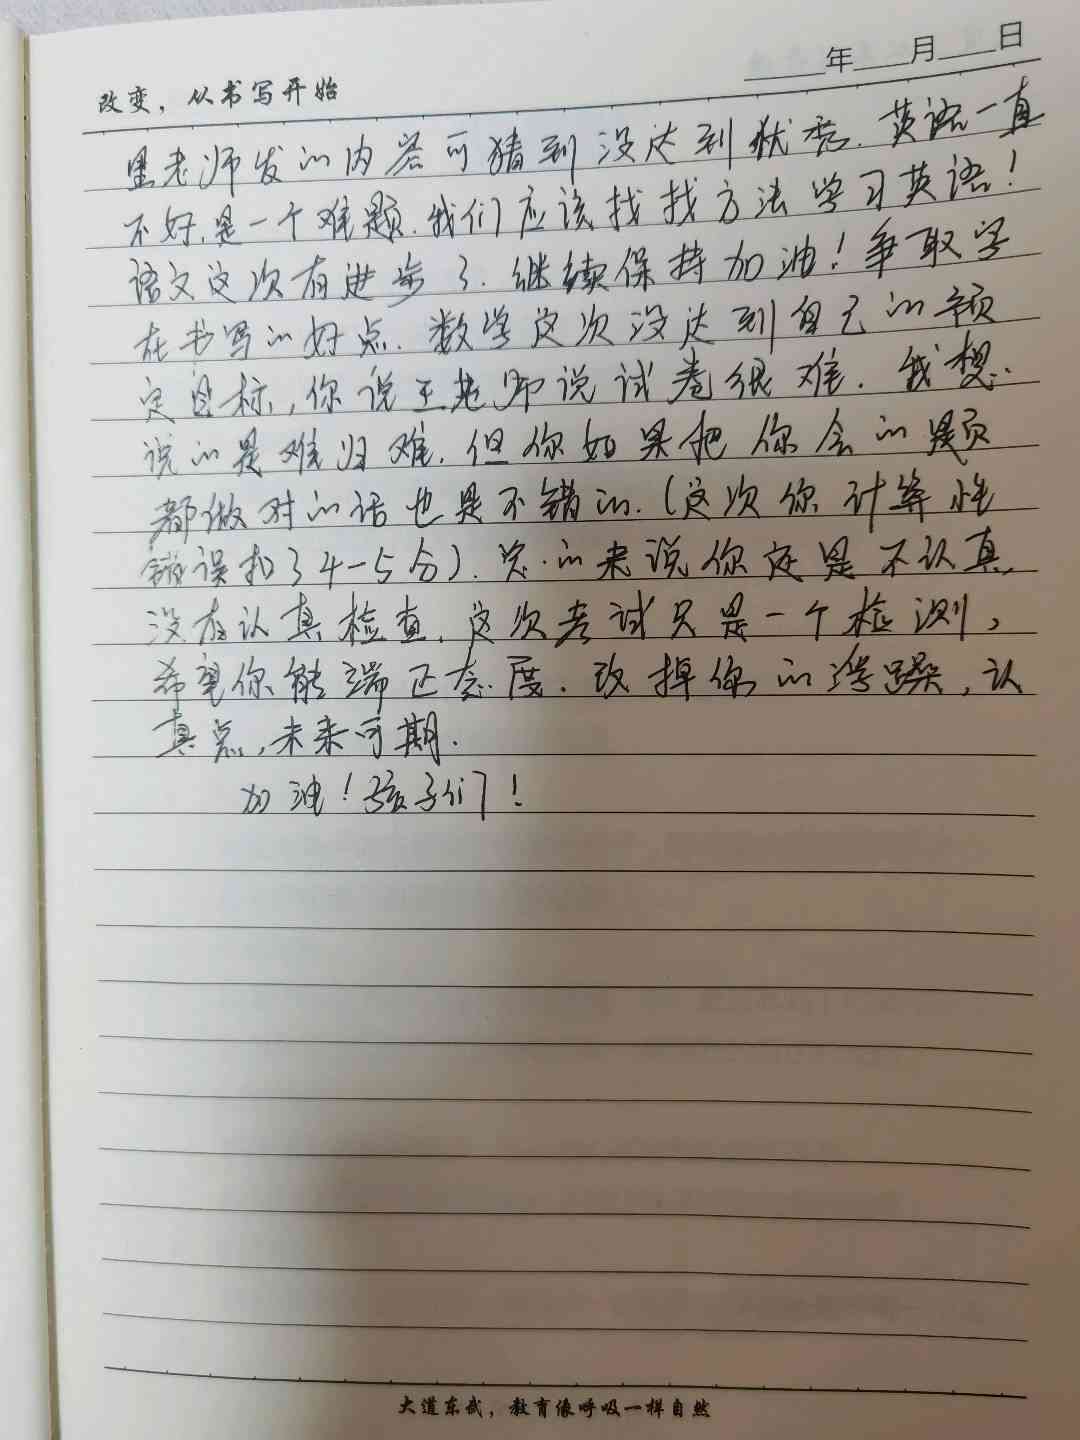 ____年____月____日
改变，从书写开始
里老师发的内容可猜到没达到状态.英语一直
不好,是一个难题.我们应该找找方法学习英语!
语文这次有进步了.继续保持加油!争取字
在书写的好点.数学这次没达到自己的预
定目标,你说王老师说试卷很难.我想
说的是难归难.但你如果把你会的题
都做对的话也是不错的.(这次你计算性
错误扣了4-5分).总的来说你还是不认真
没有认真检查.这次考试只是一个检测,
希望你能端正态度.改掉你的浮躁,认
真点,未来可期.
加油!孩子们!
大道东武，教育像呼吸一样自然